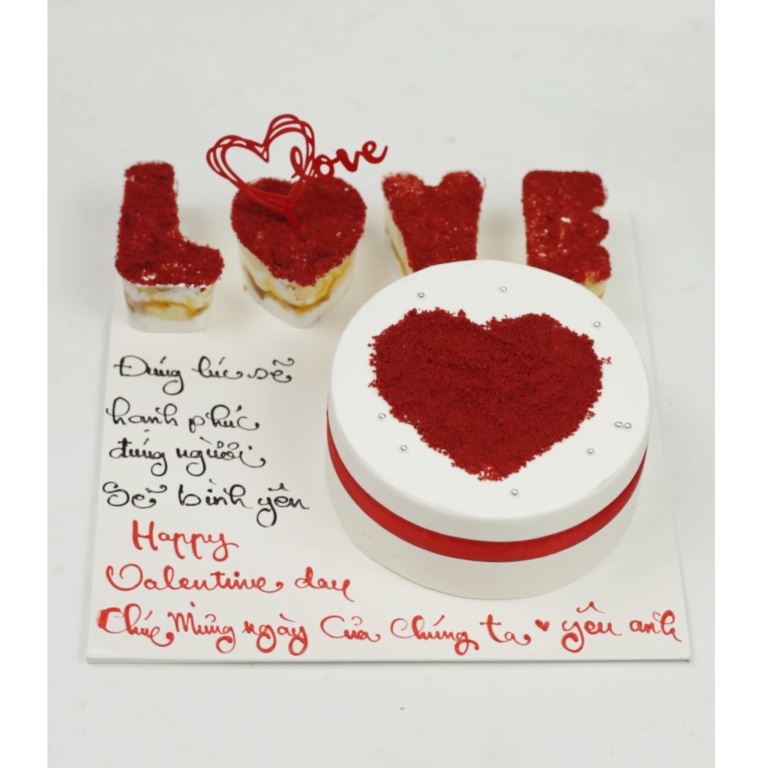 LOVE
love
Đúng lúc sẽ
hạnh phúc
đúng người
Sẽ bình yên
Happy
Valentine day
Chúc Mừng ngày Của chúng ta ♥ yêu anh